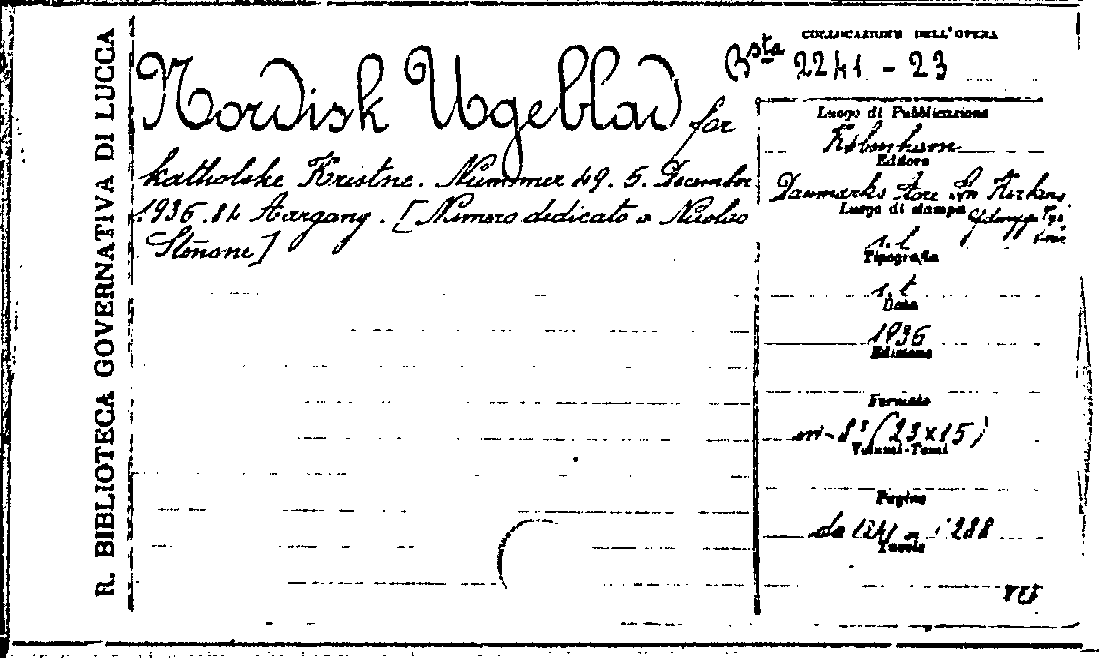 R. BIBLIOTECA GOVERNATIVA DI LUCCA
COLLOCAZIONE DELL'OPERA
Bsta 2241 - 23
Nordisk Ugeblad for
katholske Kristne. Nummer 49. 5. December
1936. 84 Aargang. [Numero dedicato a Nicolao
Stenone]
Luogo di Pubblicazione
København
Editore
Danmarks
Luogo di stampa
s. l
Tipografia
s. t
Data
1936
Edizione
Formato
in-8° (23x15)
Volumi-Tomi
Pagine
da 1241 a 1288
Tavole